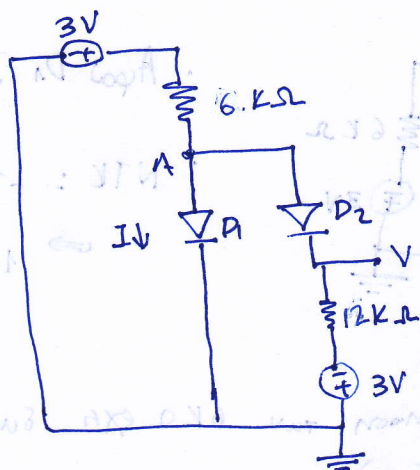 3V
- +
6.KΩ
A
I↓ D1 D2
V
12KΩ
-
+ 3V